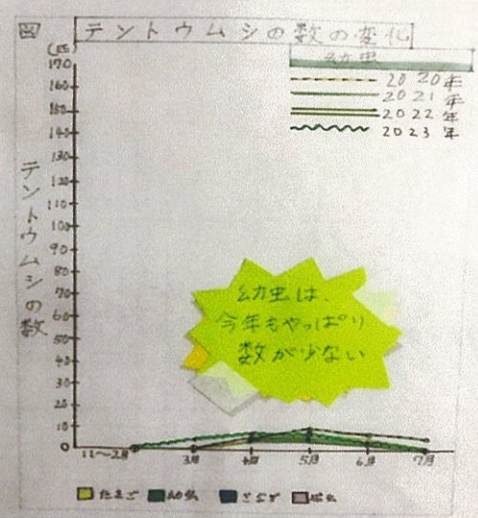 図 テントウムシの数の変化
(匹)
幼虫
2020年
2021年
2022年
2023年
170
160
150
140
130
120
110
100
90
80
70
60
50
40
30
20
10
0
テントウムシの数
幼虫は、
今年もやっぱり
数が少ない
11〜2月 3月 4月 5月 6月 7月
たまご 幼虫 さなぎ 成虫